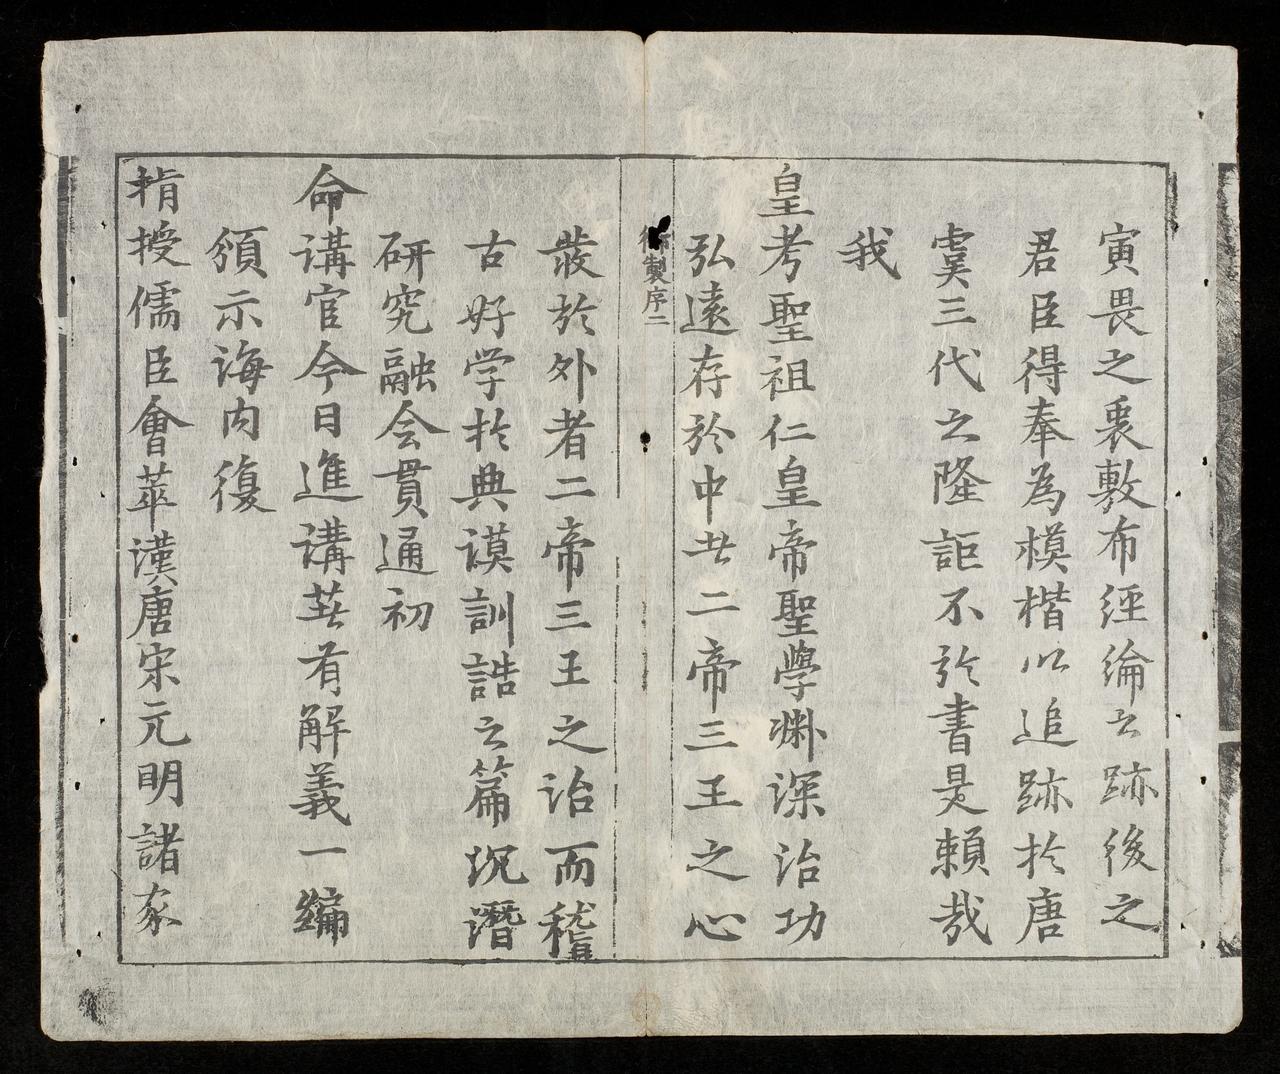 寅畏之衷敷布經綸之跡後之
君臣得奉為模楷以追跡扵唐
虞三代之隆詎不於書是賴哉
我
皇考聖祖仁皇帝聖學渊深治功
弘遠存於中者二帝三王之心
製序二
發於外者二帝三王之治而稽
古好学扵典謨訓誥之篇沉潛
研究融会貫通初
命講官今日進講著有解義一編
頒示海内復
指授儒臣會萃漢唐宋元明諸家